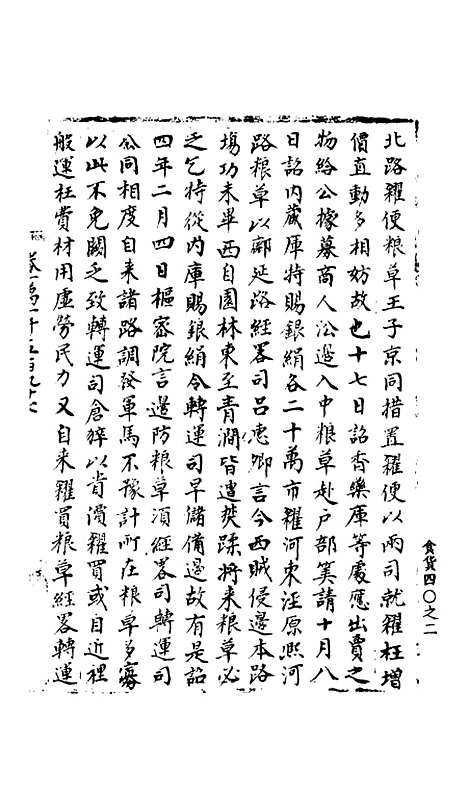 北路糴便粮草王子京同措置糴便以兩司就糴枉增
價直動多相妨故也十七日詔香藥庫等處應出賣之
物給公據募商人㳂邊入中粮草赴户部筭請十月八
日詔内藏庫特賜銀絹各二十萬市糴河東涇原熙河
路粮草以鄜延路經畧司吕惠卿言今西賊侵邊本路
塲功未畢西自園林東至青澗皆遭焚蹂將来粮草必
乏乞特從内庫賜銀絹令轉運司早儲備邊故有是詔
四年二月四日樞宻院言邊防粮草湏經畧司轉運司
公同相度自来諸路調發軍馬不豫計所在粮草多寡
以此不免闕乏致轉運司倉猝以貴價糴買或自近裡
般運枉費材用虛勞民力又自来糴買粮草經畧轉運
食貨四〇之二